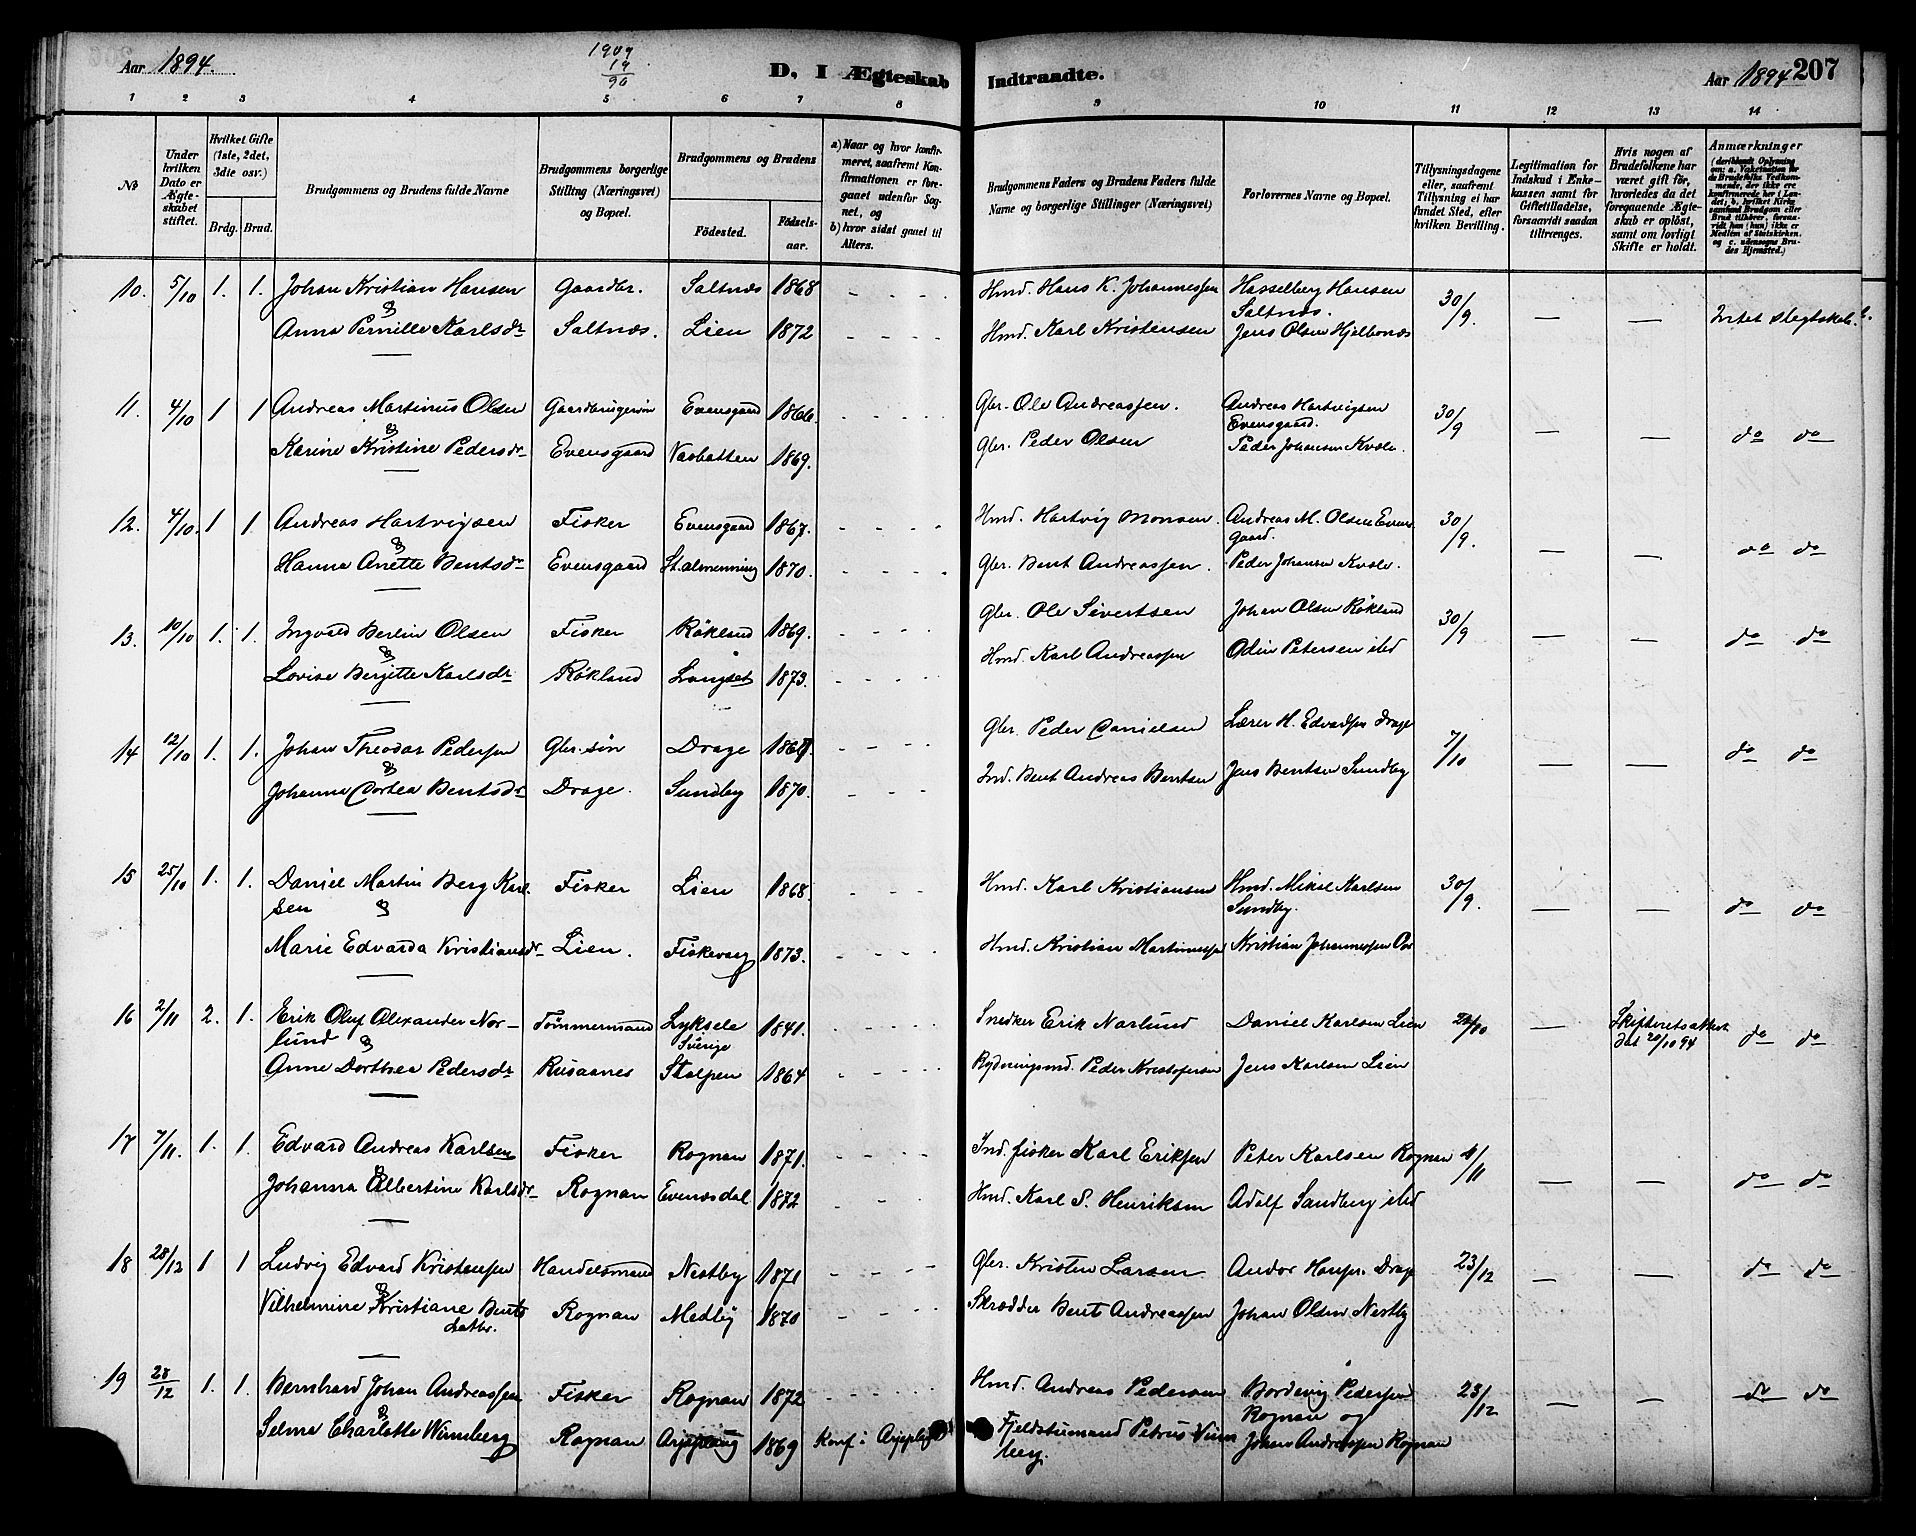 Aar 1894.
1909
19
90
D, I Ægteskab Indtraadte.
Aar 1894 207
1 2 3 4 5 6 7 8 9 10 11 12 13 14
No
Under hvilken Dato er Ægteskabet stiftet.
Hvilket Gifte (1ste, 2det, 3die osv.)
Brdg. Brud.
Brudgommens og Brudens fulde Navne
Brudgommens borgerlige Stilling (Næringsvei) og Bopæl.
Brudgommens og Brudens
Födested. Födselsaar.
a) Naar og hvor konfirmeret, saafremt Konfirmationen er foregaaet udenfor Sognet, og
b) hvor sidst gaaet til Alters.
Brudgommens Faders og Brudens Faders fulde Navne og borgerlige Stillinger (Næringsvei)
Forlovernes Navne og Bopæl.
Tillysningsdagene eller, saafremt Tillysning ei har fundet Sted, efter hvilken Bevilling.
Legitimation for Indskud i Enkekassen samt for Giftetilladelse, forsaavidt saadan tiltrænges.
Hvis nogen af Brudefolkene har været gift för, hvorledes da det foregaaende Ægteskab er oplöst, samt om lovligt Skifte er holdt.
Anmærkninger
10. 5/10 1. 1. Johan Kristian Hansen Gaardbr. Saltnæs 1868 Hmd. Hans K. Johannessen Hasselberg Hansen Saltnæs. 30/9. — — Intet Slegtskab.
& Anna Pernille Karlsdr Saltnæs. Lien 1872 Hmd. Karl Kristensen Jens Olsen Hjelbones
11. 4/10 1 1 Andreas Martinus Olsen Gaardbrugersøn Evensgaard 1866. Gbr. Ole Andreassen. Andreas Hartvigsen Evensgaard. 30/9 — — do do
& Karine Kristine Pedersdr Evensgaard Vasbotten 1869. Gbr. Peder Olsen Peder Johansen Kvæle.
12. 4/10. 1 1. Andreas Hartvigsen Fisker Evensgaard 1867. Hmd. Hartvig Monsen. Andreas M. Olsen Evensgaard. 30/9. — — do do
& Hanna Anette Bentsdr Evensgaard St.almenning 1870. Gbr. Bent Andreassen. Peder Johansen Kvæle.
13. 10/10 1. 1. Ingvald Berlin Olsen Fisker Røkland 1869. Gbr. Ole Sivertsen Johan Olsen Røkland 30/9 — — do do
& Lovise Bergitte Karlsdr Røkland Langset 1873. Hmd. Karl Andreassen Odin Petersen ibd
14 12/10 1. 1. Johan Theodor Pedersen Gbr. søn Drage Gbr. Peder Danielsen Lærer H. Edvardsen Drage 7/10 — — do do
& Johanna Dortea Bentsdr Drage. Sundby 1870. Ind. Bent Andreas Bentsen Jens Bentsen Sundby
15 25/10 1. 1. Daniel Martin Berg Karlsen Fisker Lien 1868. Hmd. Karl Kristiansen Hmd. Mikal Karlsen Sundby. 30/9. — — do do
& Marie Edvarda Kristiansdr Lien. Fiskevaag 1873. Hmd. Kristian Martinussen Kristian Johannessen
16 2/11 2. 1. Erik Oluf Alexander Norlund Tømmermand Lyksele Sverige 1841. Snedker Erik Norlund Daniel Karlsen Lien — Skifteretsattest dat 20/10 94 do do
& Anne Dorthea Pedersdr Rusaanes Stolpen 1864 Rydningsmd. Peder Kristofersen Jens Karlsen Lien
17 7/11. 1. 1. Edvard Andreas Karlsen Fisker Rognan 1871. Ind. fisker Karl Eriksen Peter Karlsen Rognan — — do do
& Johanna Albertine Karlsdr Rognan Evenesdal 1872 Hmd. Karl S. Henriksen Adolf Sandberg ibd
18 28/12 1 1 Ludvig Edvard Kristensen Handelsmand Nestby 1871 Gbr. Kristen Larsen Andor Hansen Drage 23/12 — — do do
& Vilhelmine Kristiane Bentsdatter. Rognan Medby 1870 Skrædder Bent Andreassen Johan Olsen Nestby
19 28/12 1. 1. Bernhard Johan Andreassen Fisker Rognan 1872 Hmd. Andreas Pedersen Bordevig Pedersen Rognan og 23/12 — — do do
& Selma Charlotte Winnberg Rognan Arjeplaug 1869 Konf i Arjeplog Fjeldstumand Petrus Winnberg. Johan Andreassen Rognan